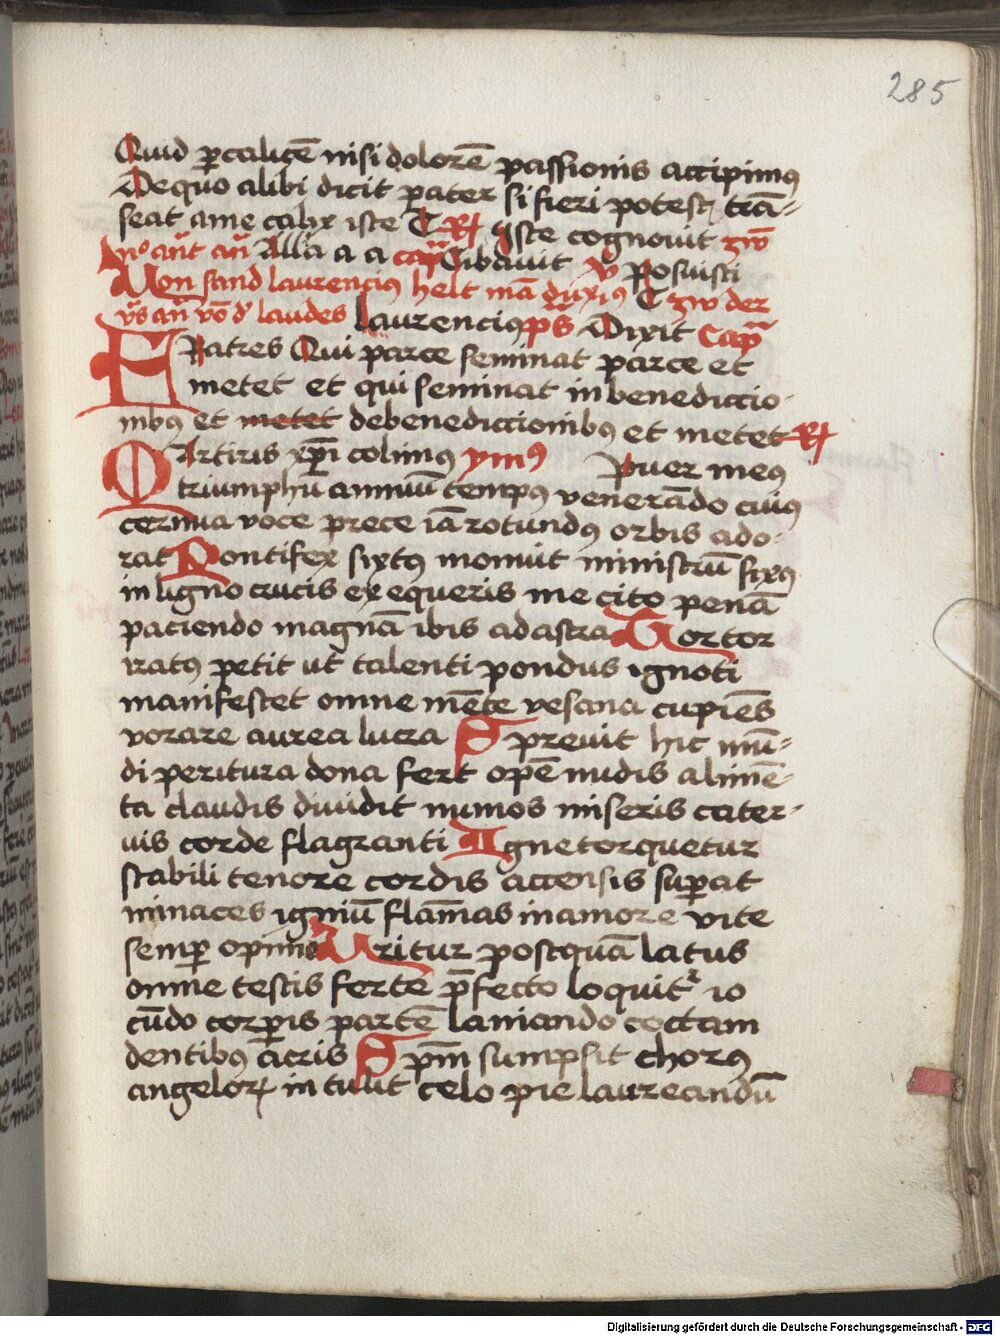 285
Quid ꝑcalicē nisi dolorē passionis accipimꝰ
Dequo alibi dicit pater si fieri potest trā-
seat ame calix iste T R Iste cognouit zw̄
Alla̅ a a cap̄ Cibauit v̄ Posuisti
Von sand laurencius helt T zw der
laudes laurenciꝰ pˢ Dixit Cap̄
Fratres Qui parce seminat parce et
metet et qui seminat in benediccio-
nibꝰ et metet debenediccionibꝰ et metet R
Martiris xp̄i colimus ymꝰ Puer meꝰ
triumphū annuū tempꝰ venerādo cuiꝰ
cernua voce prece iā rotundꝰ orbis ado-
rat Pontifex sixtꝰ monuit ministrū fixꝰ
in ligno crucis exequeris me cito penā
paciendo magnā ibis ad astra Tortor
iratꝰ petit ut talenti pondus ignoti
manifestet omne mēte vesana cupiēs
vorare aurea lucra Spreuit hic mū-
di peritura dona fert opē nudis alimē-
ta claudis diuidit numos miseris cater-
uis corde flagranti Igne torquetur
stabili tenore cordis accensis suꝑat
minaces igniū flam̄as in amore vite
semꝑ opime Uritur postquā latus
omne testis fertē ꝓfecto loquitʳ io
cūdo corꝑis partē laniando coctam
dentibꝰ acris Spm̄ sumpsit chorꝰ
angeloꝝ intulit celo pie laureandū
Digitalisierung gefördert durch die Deutsche Forschungsgemeinschaft - DFG